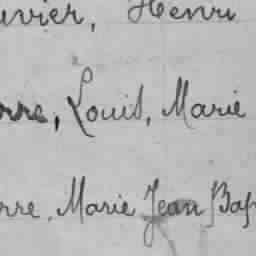 uvier, Henri
rre, Louis, Marie
rre, Marie Jean Bap